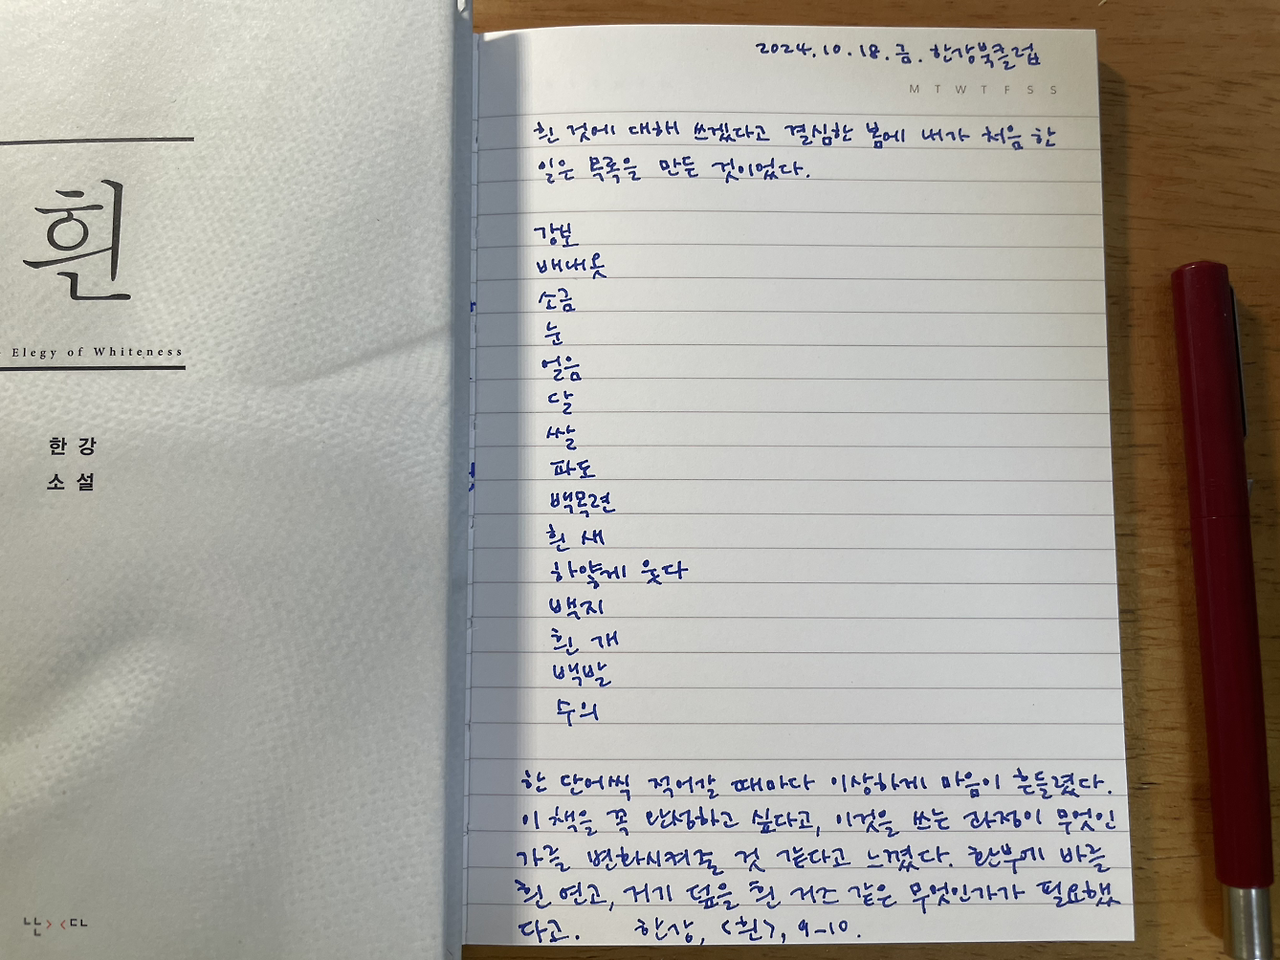 흰
Elegy of Whiteness
한강
소설
난다
2024.10.18.금. 한강북클럽
M T W T F S S
흰 것에 대해 쓰겠다고 결심한 봄에 내가 처음 한
일은 목록을 만든 것이었다.
강보
배내옷
소금
눈
얼음
달
쌀
파도
백목련
흰 새
하얗게 웃다
백지
흰 개
백발
수의
한 단어씩 적어갈 때마다 이상하게 마음이 흔들렸다.
이 책을 꼭 완성하고 싶다고, 이것을 쓰는 과정이 무엇인
가를 변화시켜줄 것 같다고 느꼈다. 환부에 바를
흰 연고, 거기 덮을 흰 거즈 같은 무엇인가가 필요했
다고. 한강, <흰>, 9-10.